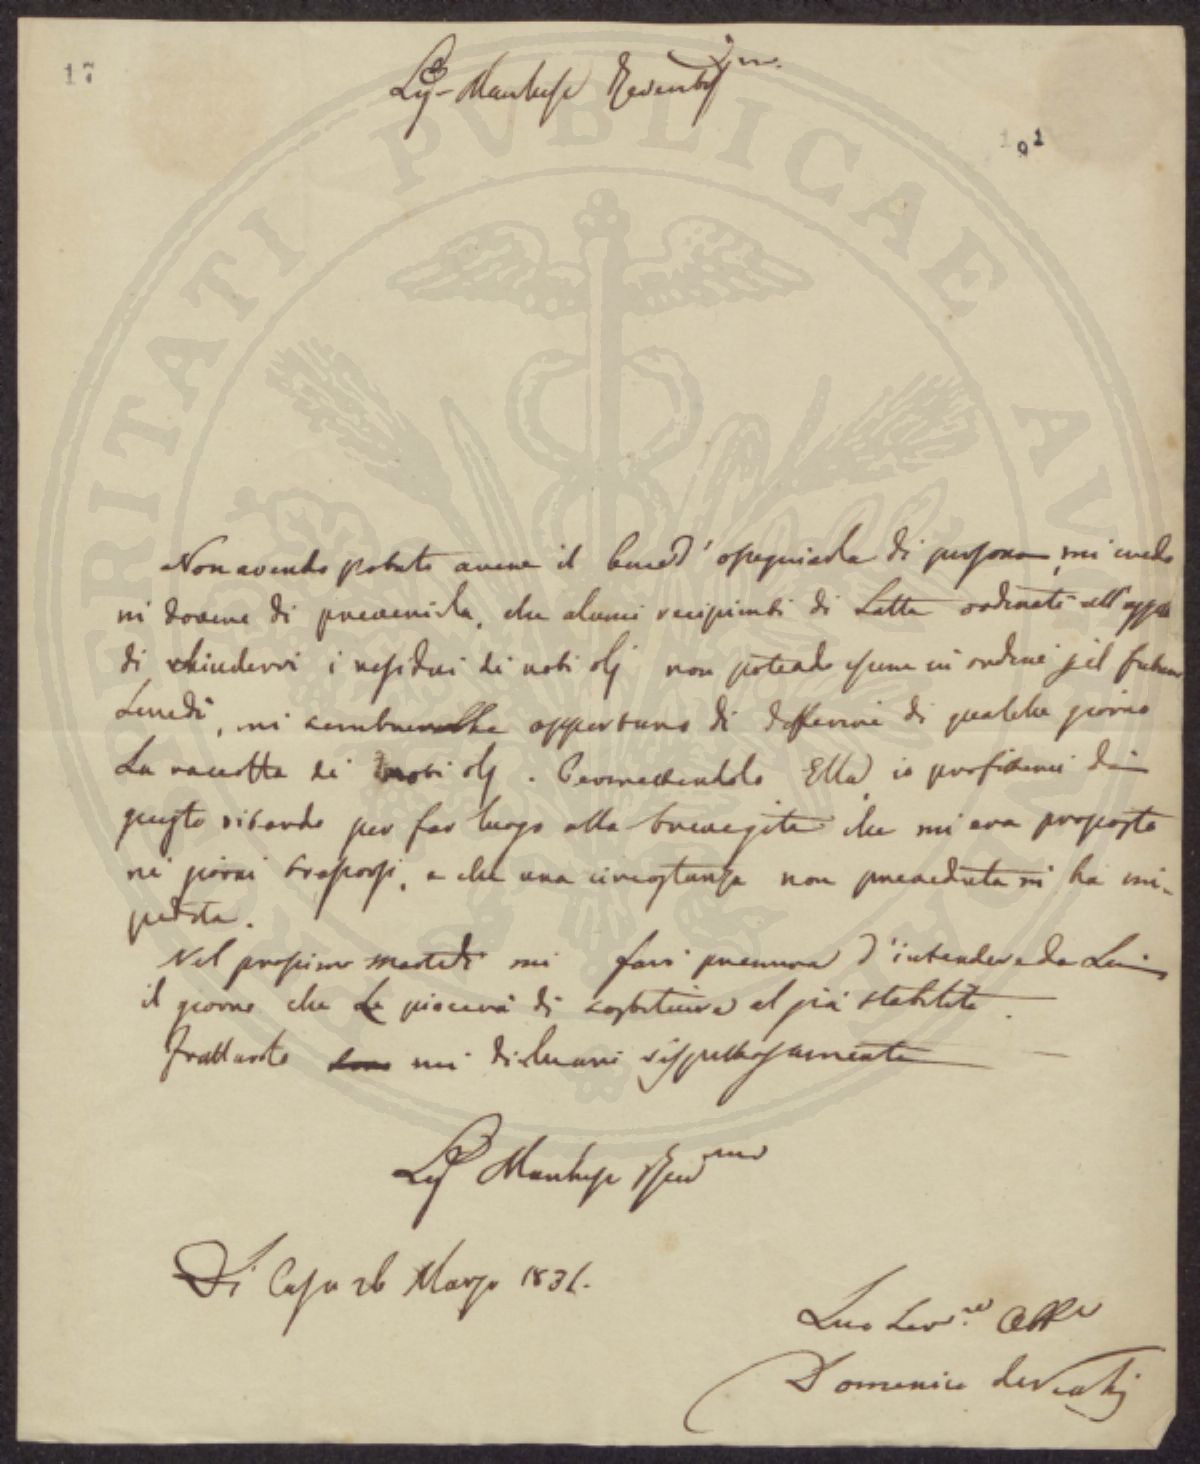 17
191
Non avendo potuto avere il bene d'ossequiarla di persona, mi credo
in dovere di prevenirla, che alcuni recipienti di Latta ordinati all'
di chiudervi i residui dei noti olj non potendo essere in ordine pel futuro
Lunedì, mi sembrerebbe opportuno di differire di qualche giorno
La raccolta dei noti olj. Permettendolo Ella, io profitterei di
questo ritardo per far luogo alla che mi era proposta
nei giorni trascorsi, e che una circostanza non preveduta mi ha im-
pedita.
Nel prossimo martedì mi farò premura d'intendere da Lei
il giorno che Le piacerà di sostituire al già stabilito.
Frattanto mi dichiaro rispettosamente
Di Casa 26 Marzo 1831.
Suo
Domenico
PROSPERITATI PVBLICAE AVGENDAE